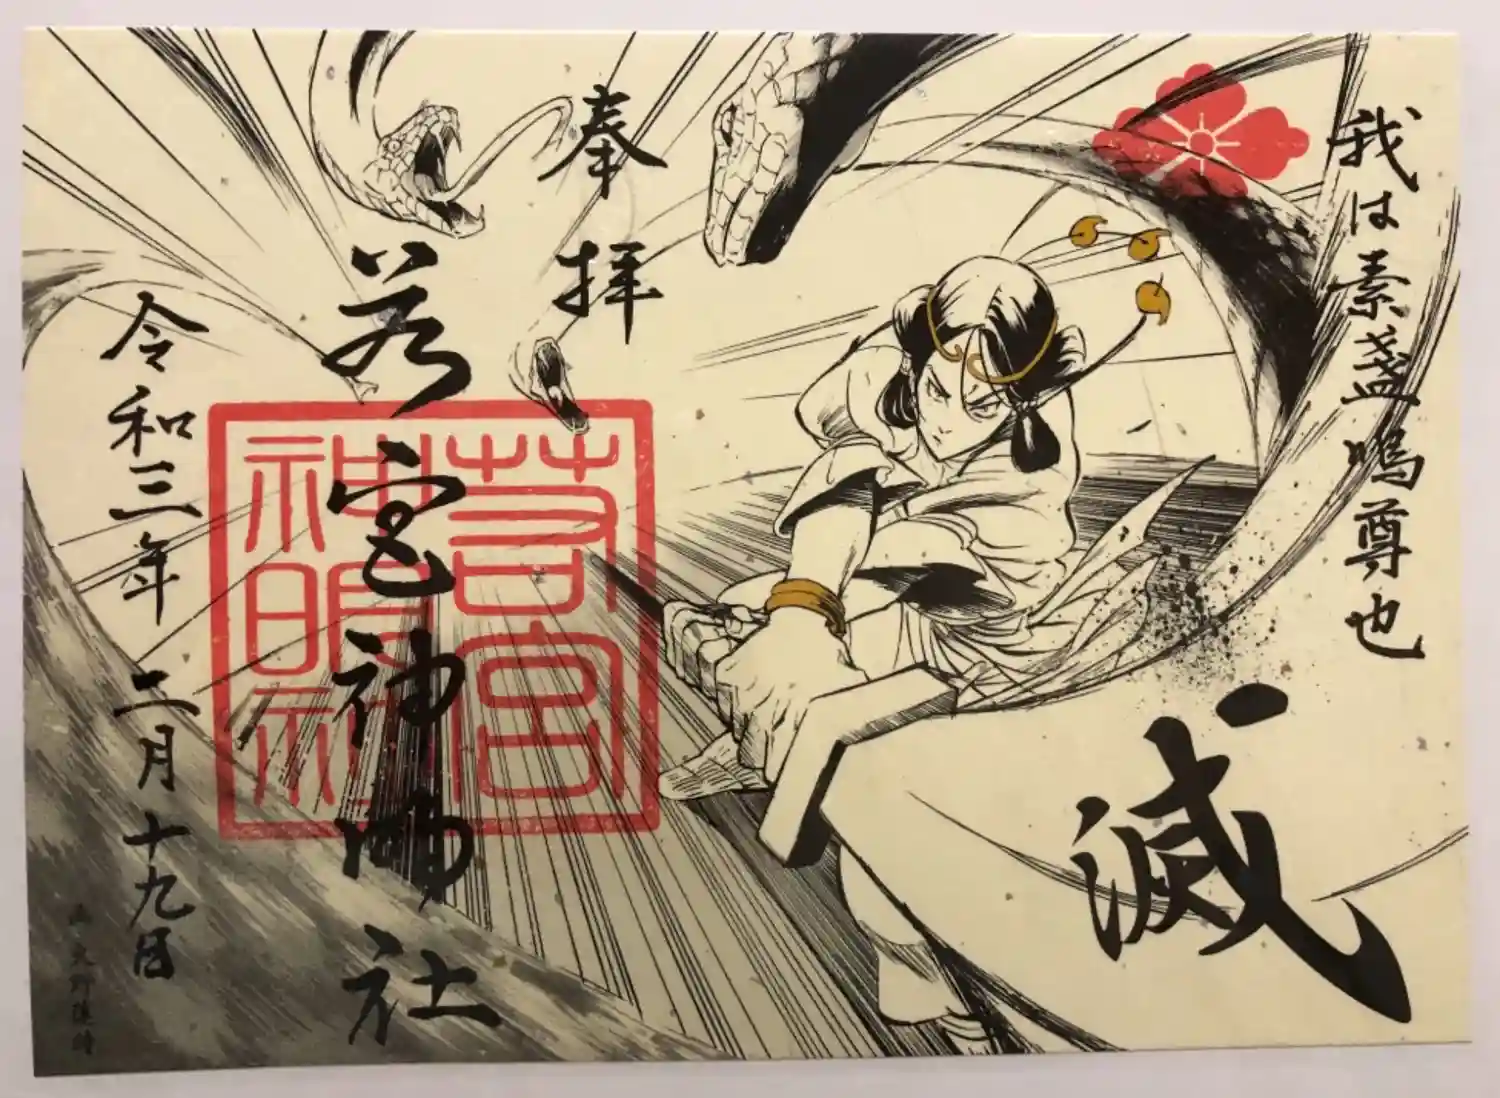 我は素盞嗚尊也
滅
奉拝
若宮神明社
若宮
神明社
令和三年二月十九日